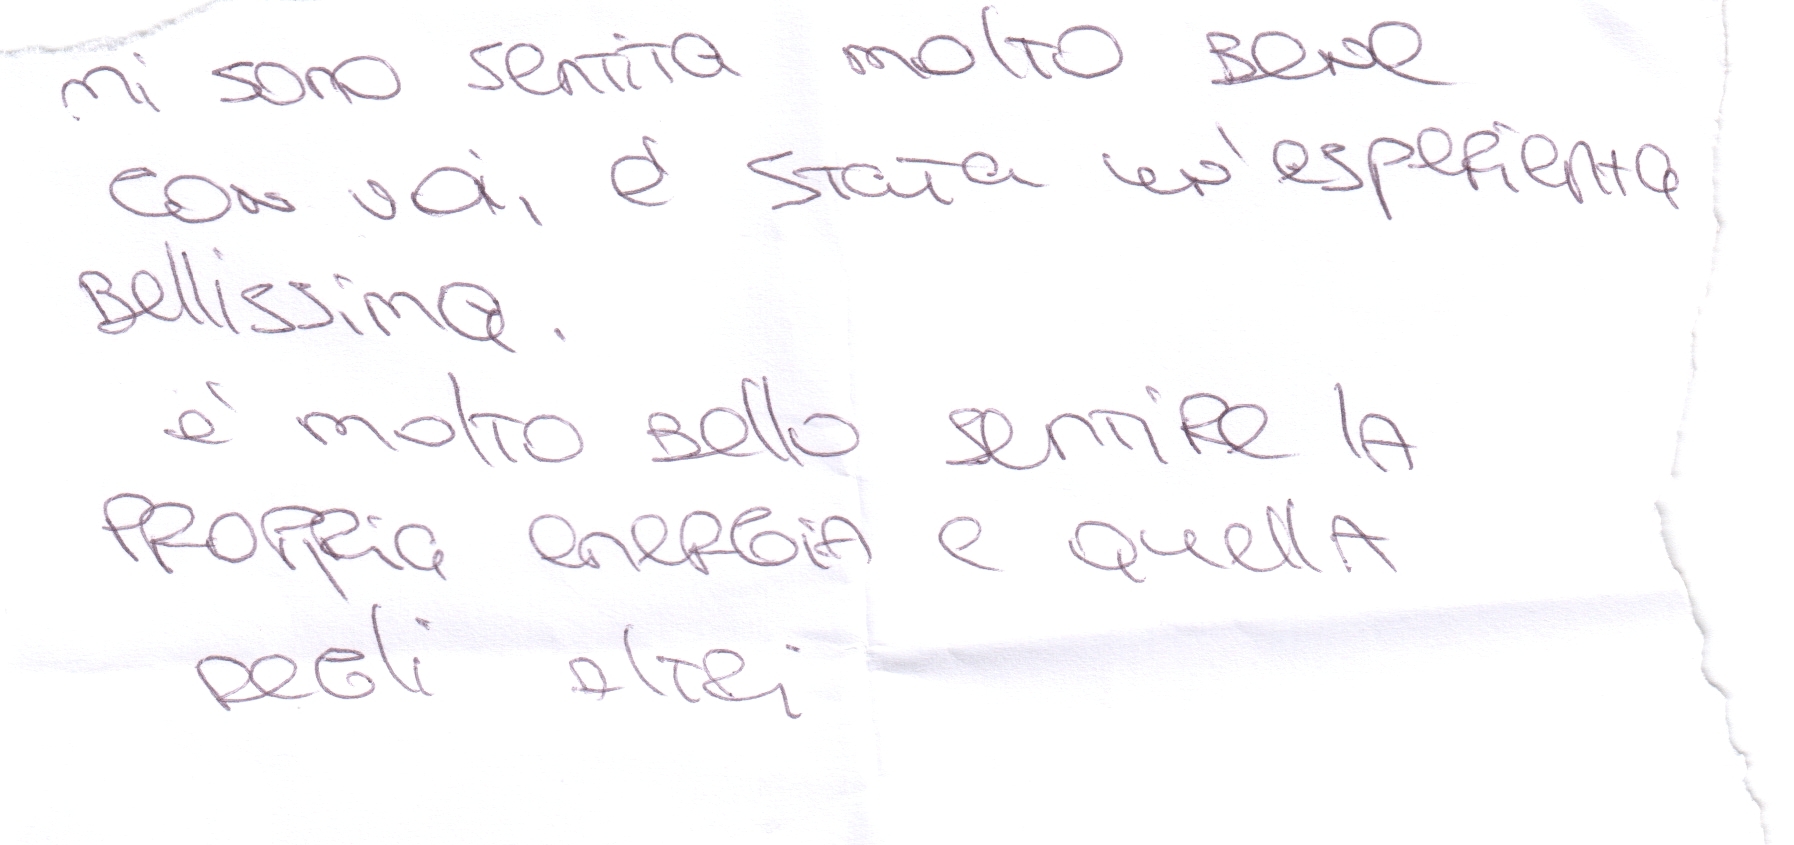 mi sono sentita molto bene
con voi, é stata un'esperienza
Bellissima.
é molto Bello sentire lA
PROPRia eneRGiA e quellA
DeGli altRi